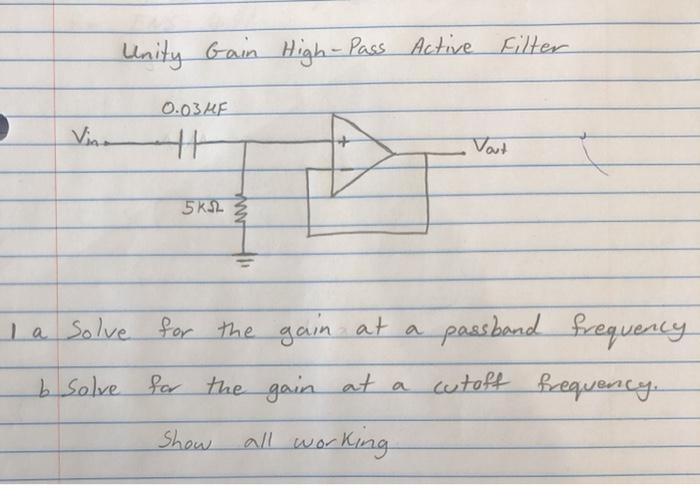 Unity Gain High-Pass Active Filter
0.03μF
Vin
+
-
Vout
5KΩ
1 a Solve for the gain at a passband frequency
b Solve for the gain at a cutoff frequency.
Show all working